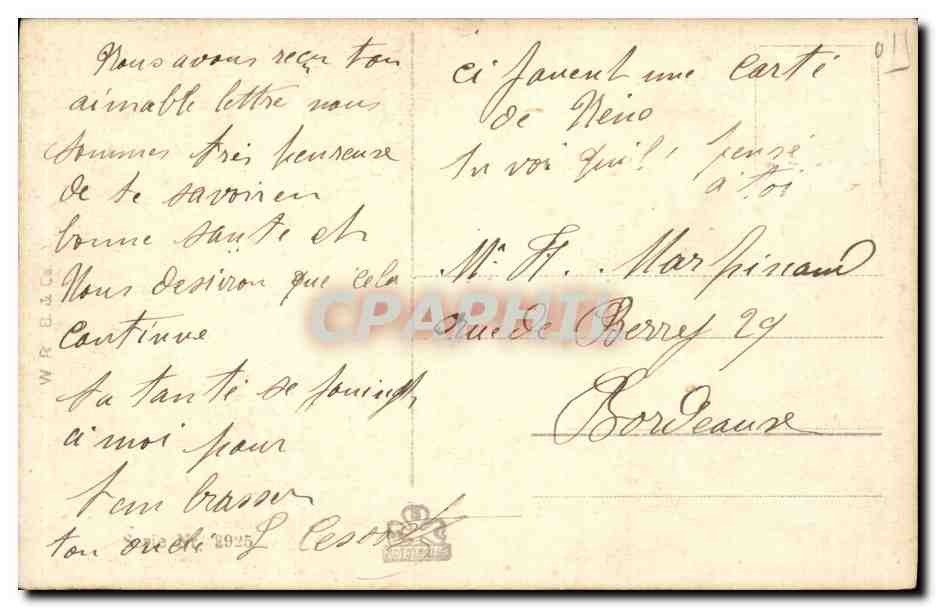 Nous avons reçu ton
aimable lettre nous
sommes tres heureuse
de te savoir en
bonne sante et
Nous desiron que cela
continue
ta tante se joing
a moi pour
t'em brasser
ton oncle L
ci jouent une carte
de Néno
tu voi qu'il pense
a toi
Mr H. Marpinaud
rue de Berrey 29
Bordeaux
CPAPHIL
W R B & Co
Serie Nr. 2925